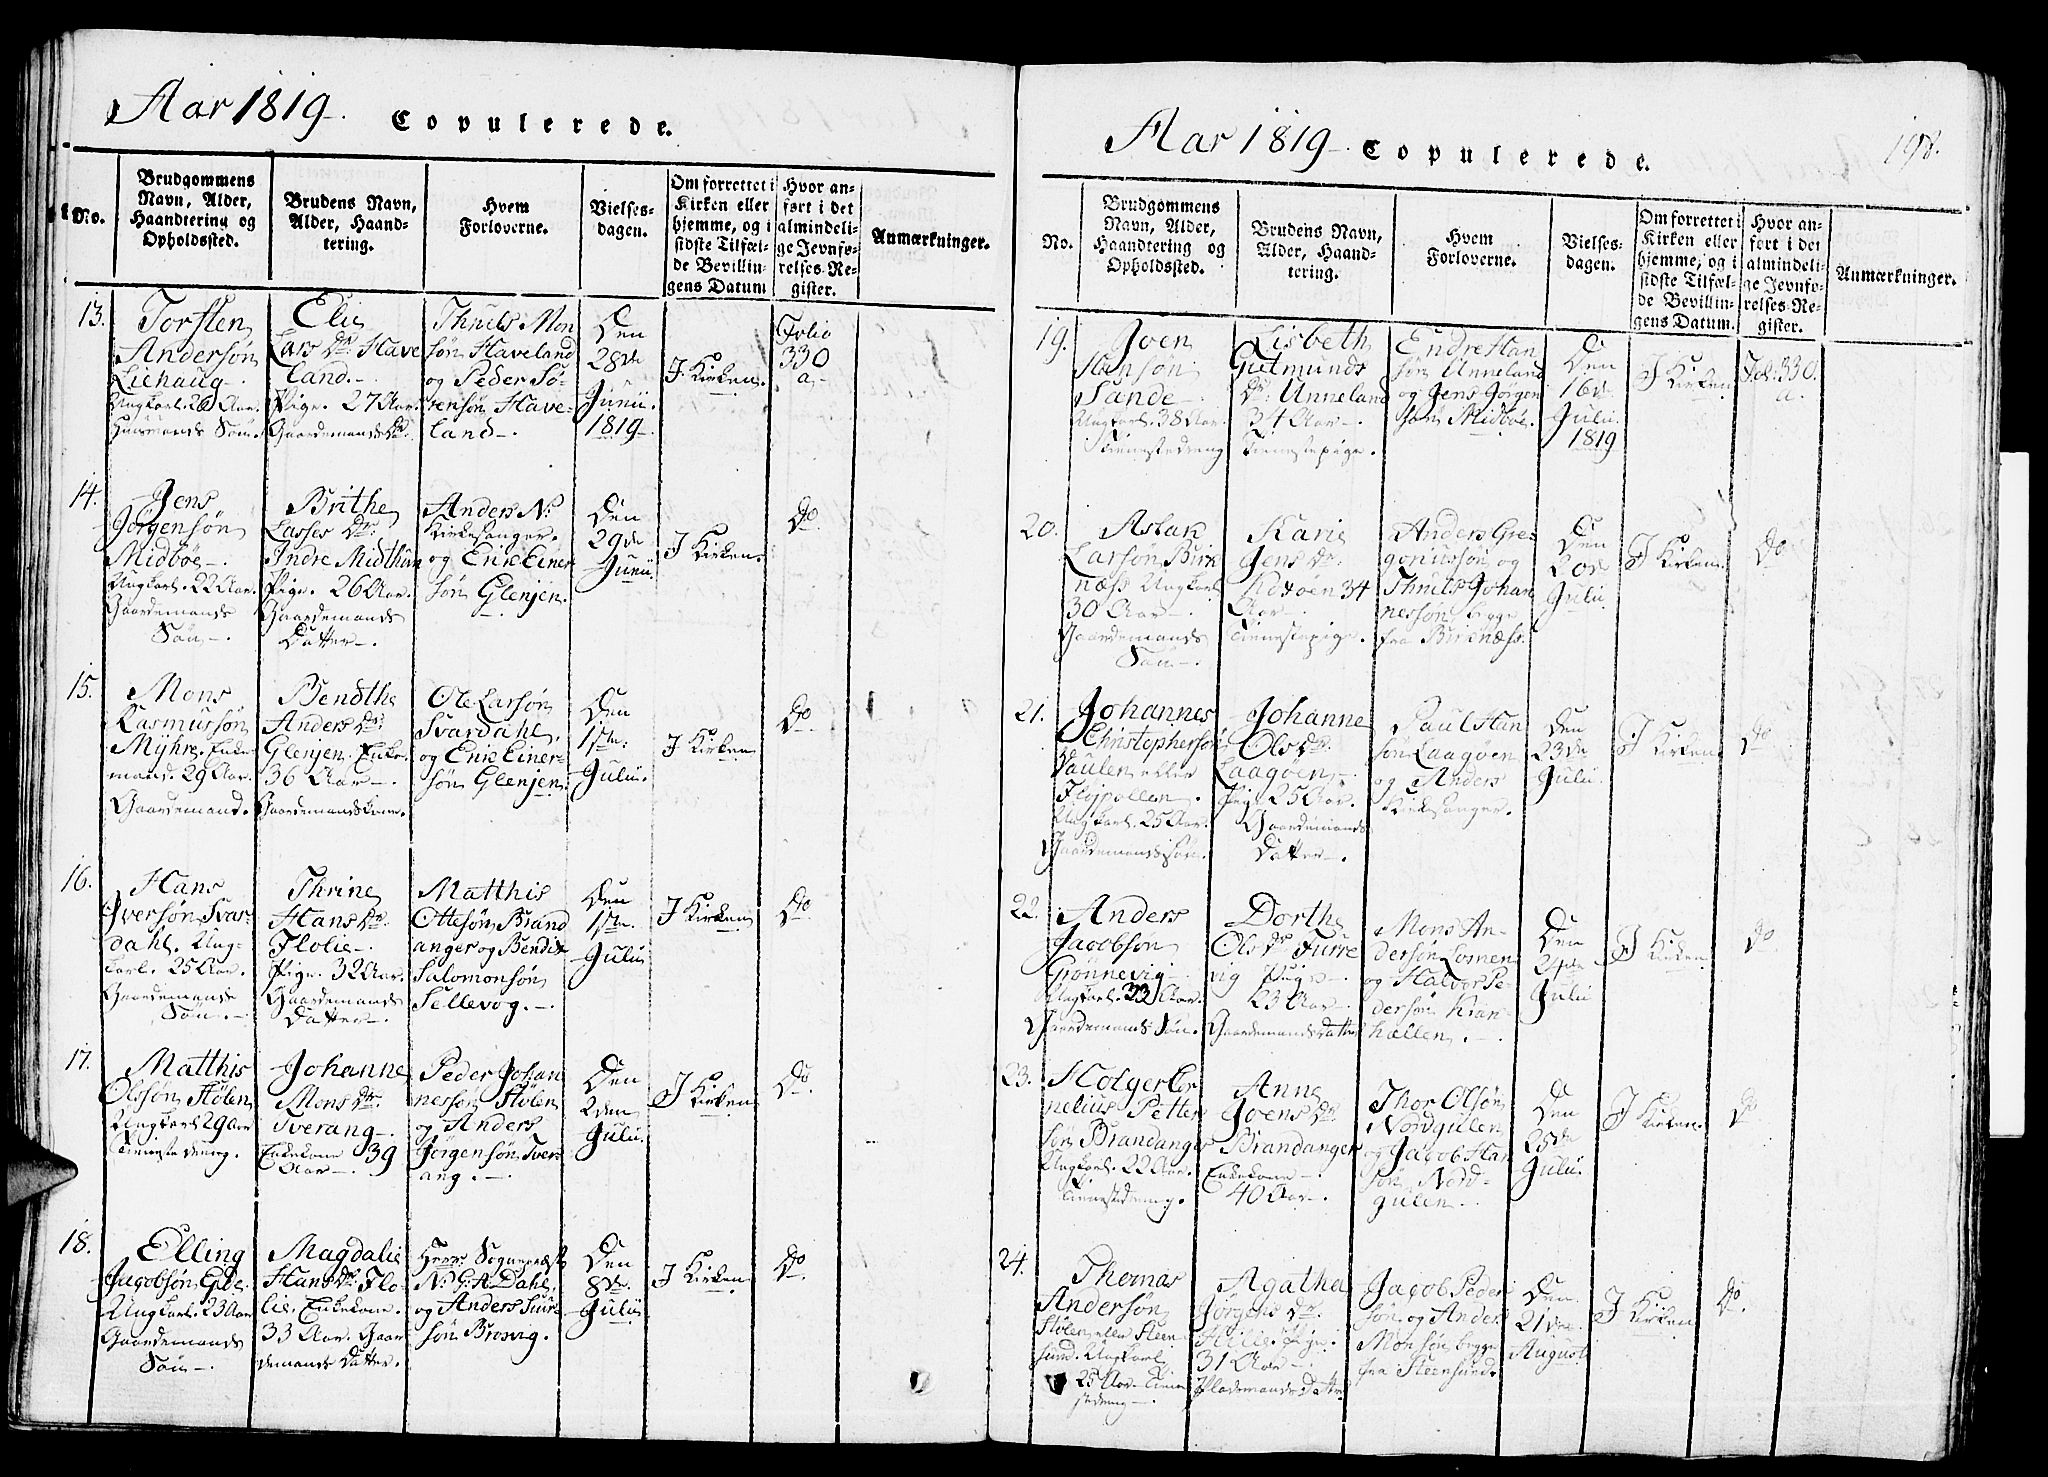 Aar 1819. Copulerede.
No.
Brudgommens
Navn, Alder,
Haandtering og
Opholdssted.
Brudens Navn,
Alder, Haand-
tering.
Hvem
Forloverne.
Vielses-
dagen.
Om forrettet i
Kirken eller
hjemme, og i
sidste Tilfæl-
de Bevillin-
gens Datum
Hvor an-
ført i det
almindeli-
ge Jevnfø-
relses-Re-
gister.
Anmærkninger.
13.
Torsten
Andersøn
Liehaug.
Ungkarl. 26 Aar.
Huusmands Søn.
Elie
Lars Dr. Have
land.
Pige. 27 Aar.
Gaardemands Dr.
Thniels Mon
søn Haveland
og Peder Sø-
rensøn Have-
land.
Den
28de
Junii.
1819
I Kirken.
Folio
330
a.
14.
Jens
Jørgensøn
Midbøe.
Ungkarl. 22 Aar.
Gaardemands
Søn.
Brithe
Lasses Dr.
Indre Midthun
Pige. 26 Aar.
Gaardemands
Datter.
Anders N.
Kirkesanger.
og Eric Einer
søn Glenjen.
Den
29de
Junii.
I Kirken.
Do
15.
Mons
Rasmussøn
Myhre. Enke-
mand. 29 Aar.
Gaardemand.
Bendthe
Anders Dr.
Glenjen. Enke.
36 Aar.
Gaardemandskone.
Ole Larsøn
Svardahl,
og Eric Einer-
søn Glenjen.
Den
1ste
Julii.
I Kirken
Do
16.
Hans
Iversøn Svar-
dahl. Ung-
karl. 25 Aar.
Gaardemands
Søn.
Thrine
Hans Dr.
Flolie.
Pige. 32 Aar.
Gaardemands
Datter.
Matthis
Ottesøn Brand
anger og Bendix
Salomonsøn
Sellevog.
Den
1ste
Julii
I Kirken
Do
17.
Matthis
Olsøn Hølen
Ungkarl 29 Aar
Tienestedreng.
Johanne
Mons Dr.
Tverang
Enkekone 39
Aar.
Peder Johan
nessøn Hølen
og Anders
Jørgensøn Tver
ang.
Den
2den
Julii.
I Kirken
Do
18.
Elling
Jacobsøn Gile
Ungkarl. 23 Aar
Gaardemands
Søn.
Magdalie
Hans Dr. Flo-
lie. Enkekone.
33 Aar. Gaar
demands Datter.
Herr Sogneprest
N. G. A. Dahl,
og Anders Siur-
søn Brosvig.
Den
8de
Julii
I Kirken
Do
Aar 1819 Copulerede.
198.
No.
Brudgommens
Navn, Alder,
Haandtering og
Opholdssted.
Brudens Navn,
Alder, Haand-
tering.
Hvem
Forloverne.
Vielses-
dagen.
Om forrettet i
Kirken eller
hjemme, og i
sidste Tilfæl-
de Bevillin-
gens Datum.
Hvor an-
ført i det
almindeli-
ge Jevnfø-
relses-Re-
gister.
Anmærkninger.
19.
Joen
Hansøn
Sande
Ungkarl. 38 Aar.
Tienestedreng
Lisbeth
Gutmunds
Dr: Unneland
34 Aar.
Tienestepige.
Endre Han
søn Unneland
og Jens Jørgen
søn Midbøe.
Den
16de
Julii.
1819
I Kirken
Fol: 330.
a.
20.
Aslak
Larsøn Birk
næss Ungkarl
30 Aar
Gaardemands
Søn.
Karie
Jens Dr.
34
Aar
Tienestepige.
Anders Gre-
goriussøn og
Thniels Johan
nessøn begge
fra Birknæss.
Den
20de
Julii
I Kirken.
Do
21.
Johannes
Christophersøn
Vaulen eller
Fløjpollen.
Ungkarl. 25 Aar.
Gaardemandssøn.
Johanne
Ols Dr.
Laagøen.
Pige 25 Aar.
Gaardemands
Datter.
Paul Han
søn Laagøen
og Anders
Kirkesanger.
Den
23de
Julii
I Kirken
Do
22.
Anders
Jacobsøn
Grønnevig
Ungkarl. 33 Aar.
Gaardemands Søn.
Dorthe
Ols Dr. Furre
vig Pige
23 Aar
Gaardemandsdatter
Mons An-
dersøn Losnen
og Halvor Pe-
dersøn Kran-
hællen.
Den
24de
Julii
I Kirken
Do
23.
Holger Cor
nelius Petter
søn Brandanger
Ungkarl. 22 Aar.
Tienestedreng.
Anne
Joens Dr.
Brandanger
Enkekone
40 Aar.
Thor Olsøn
Nordgulen
og Jacob Han
søn Nord-
gulen.
Den
25de
Julii.
I Kirken.
Do
24.
Thomas
Andersøn
Hølen eller Steen-
sund. Ungkarl
25 Aar. Tiene
stedreng
Agatha
Jørgens Dr.
Hille. Pige.
31 Aar
Pladsmands Datter
Jacob Peder
søn og Anders
Monsøn begge
fra Steensund.
Den
21de
August
I Kirken
Do.